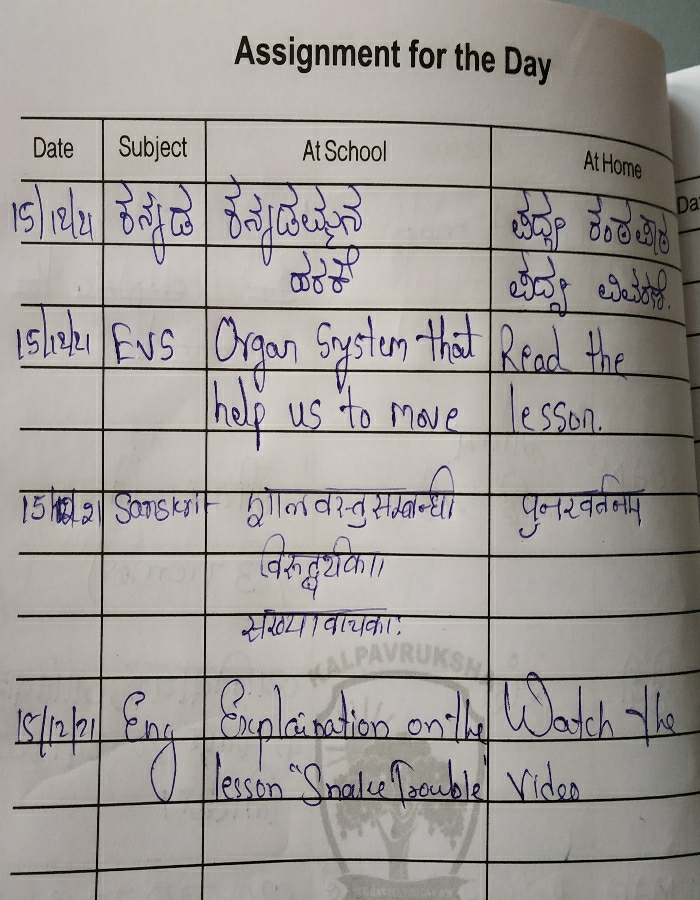 Assignment for the Day
Date Subject At School At Home
Da
15/12/21 ಕನ್ನಡ ಕನ್ನಡಮ್ಮನ ಪದ್ಯ ಕಂಠಪಾಠ
ಹರಕೆ ಪದ್ಯ ವಿವರಣೆ.
15/12/21 EVS Organ System that Read the
help us to move lesson.
15/12/21 Sanskrit शालवस्तुसम्बन्धी पुनरवर्तनम
संख्यावाचका:
15/12/21 Eng Explaination on the Watch the
lesson "Snake Trouble" Video
KALPAVRUKSHA